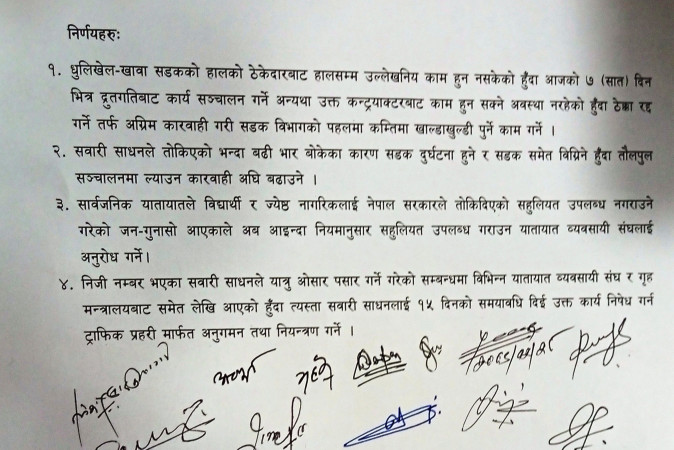 निर्णयहरुः
१. धुलिखेल-खावा सडकको हालको ठेकेदारबाट हालसम्म उल्लेखनिय काम हुन नसकेको हुँदा आजको ७ (सात) दिन
भित्र द्रुतगतिबाट कार्य सञ्चालन गर्ने अन्यथा उक्त कन्ट्र्याक्टरबाट काम हुन सक्ने अवस्था नरहेको हुँदा ठेक्का रद्द
गर्ने तर्फ अग्रिम कारवाही गरी सडक विभागको पहलमा कम्तिमा खाल्डाखुल्डी पुर्ने काम गर्ने ।
२. सवारी साधनले तोकिएको भन्दा बढी भार बोकेका कारण सडक दुर्घटना हुने र सडक समेत बिग्रिने हुँदा तौलपुल
सञ्चालनमा ल्याउन कारवाही अघि बढाउने ।
३. सार्वजनिक यातायातले विद्यार्थी र ज्येष्ठ नागरिकलाई नेपाल सरकारले तोकिदिएको सहुलियत उपलब्ध नगराउने
गरेको जन-गुनासो आएकाले अब आइन्दा नियमानुसार सहुलियत उपलब्ध गराउन यातायात व्यवसायी संघलाई
अनुरोध गर्ने।
४. निजी नम्बर भएका सवारी साधनले यात्रु ओसार पसार गर्ने गरेको सम्बन्धमा विभिन्न यातायात व्यवसायी संघ र गृह
मन्त्रालयबाट समेत लेखि आएको हुँदा त्यस्ता सवारी साधनलाई १५ दिनको समयावधि दिई उक्त कार्य निषेध गर्न
ट्राफिक प्रहरी मार्फत अनुगमन तथा नियन्त्रण गर्ने ।